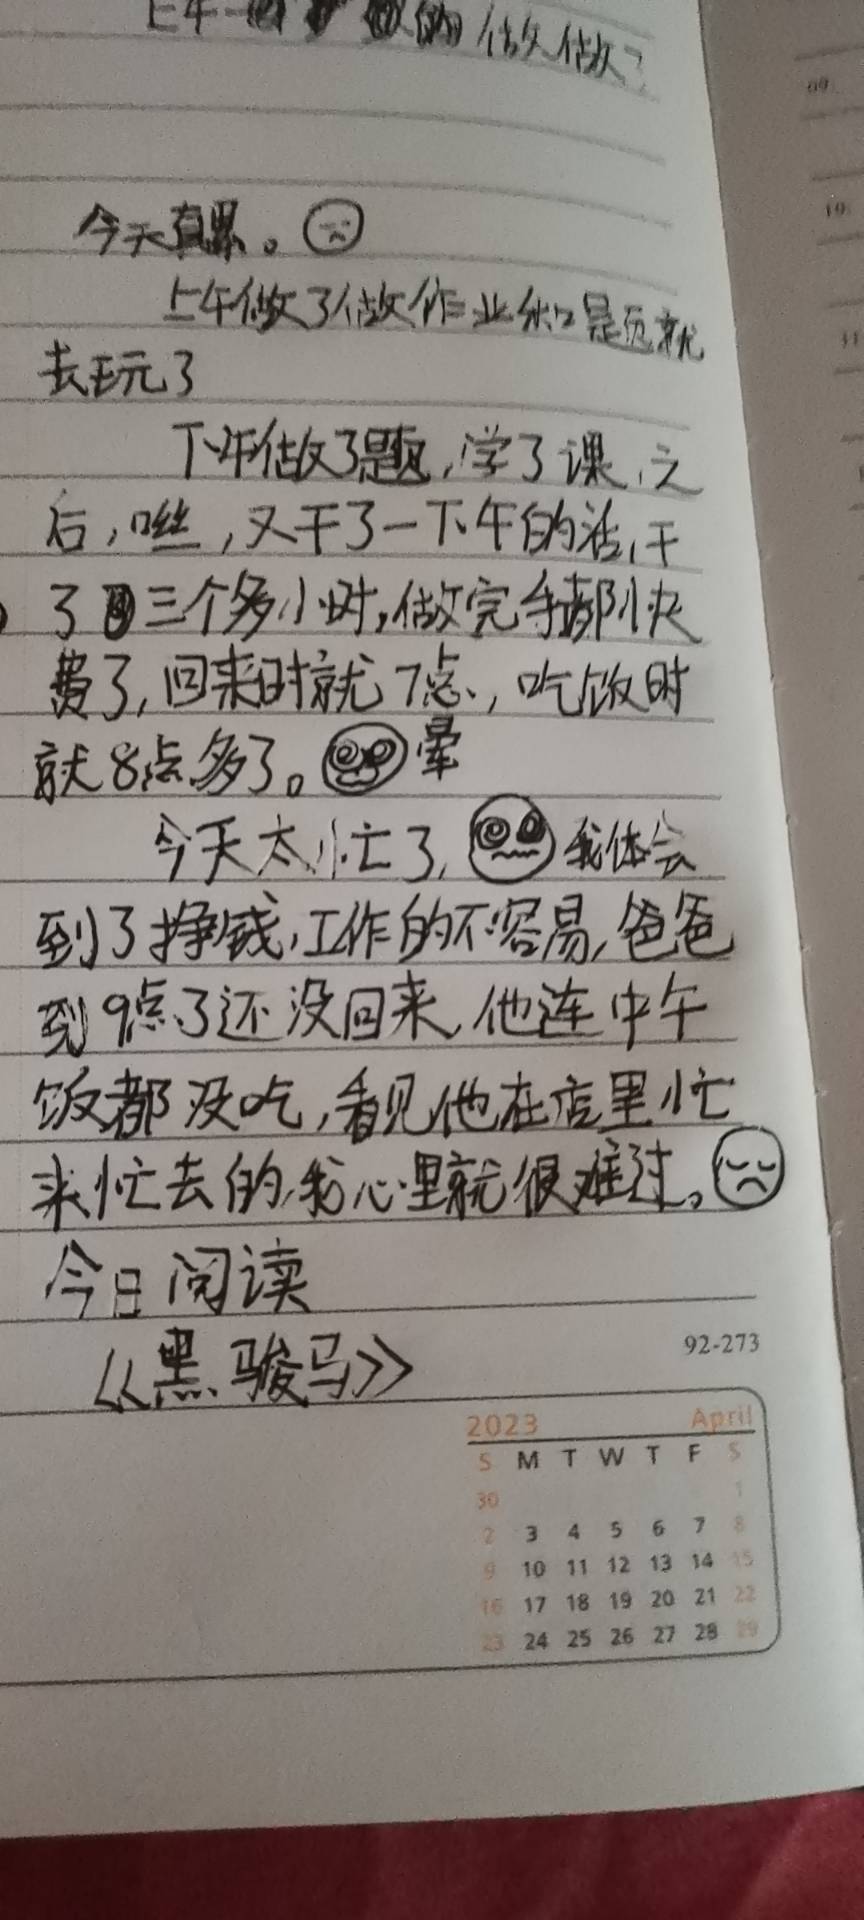 上午 的 做做了
今天真累。
上午做了做作业和是页就
去玩了
下午做了题,学了课,之
后,咝,又干了一下午的活,干
了三个多小时,做完手都快
费了,回来时就7点,吃饭时
就8点多了。晕
今天太忙了,我体会
到了挣钱,工作的不容易,爸爸
到9点了还没回来,他连中午
饭都没吃,看见他在店里忙
来忙去的,我心里就很难过。
今日阅读
《黑骏马》
92-273
2023 April
S M T W T F S
30 1
2 3 4 5 6 7 8
9 10 11 12 13 14 15
16 17 18 19 20 21 22
23 24 25 26 27 28 29
09
10
11